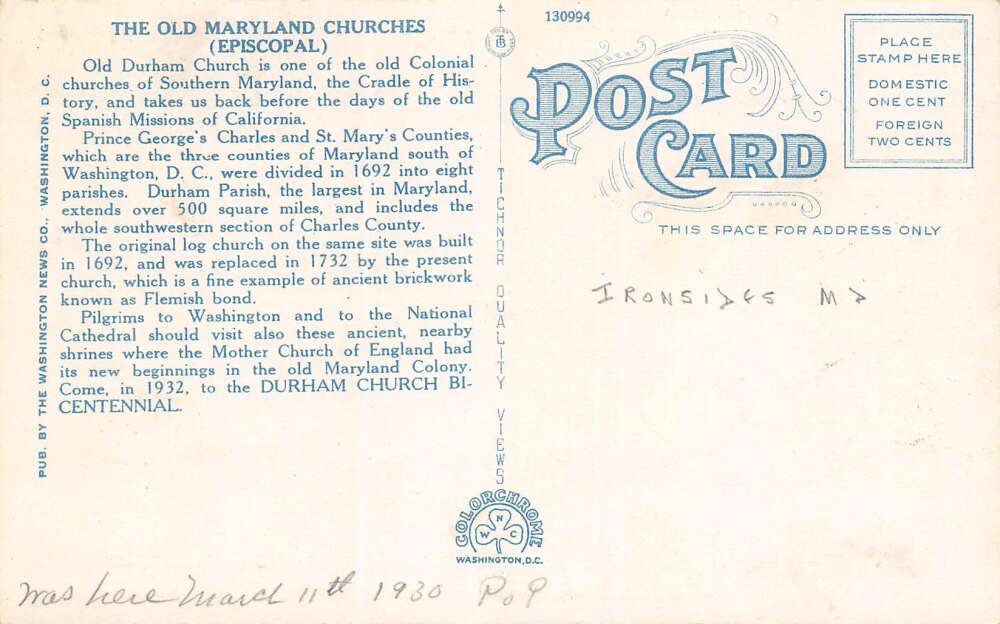 THE OLD MARYLAND CHURCHES
(EPISCOPAL)
Old Durham Church is one of the old Colonial
churches of Southern Maryland, the Cradle of His-
tory, and takes us back before the days of the old
Spanish Missions of California.
Prince George's Charles and St. Mary's Counties,
which are the three counties of Maryland south of
Washington, D. C., were divided in 1692 into eight
parishes. Durham Parish, the largest in Maryland,
extends over 500 square miles, and includes the
whole southwestern section of Charles County.
The original log church on the same site was built
in 1692, and was replaced in 1732 by the present
church, which is a fine example of ancient brickwork
known as Flemish bond.
Pilgrims to Washington and to the National
Cathedral should visit also these ancient, nearby
shrines where the Mother Church of England had
its new beginnings in the old Maryland Colony.
Come, in 1932, to the DURHAM CHURCH BI-
CENTENNIAL.
PUB. BY THE WASHINGTON NEWS CO., WASHINGTON, D. C.
TICHNOR QUALITY VIEWS
130994
POST
CARD
PLACE
STAMP HERE
DOMESTIC
ONE CENT
FOREIGN
TWO CENTS
THIS SPACE FOR ADDRESS ONLY
IRONSIDES MD
COLORCHROME
N
W C
WASHINGTON, D.C.
Was here March 11th 1930 PoP